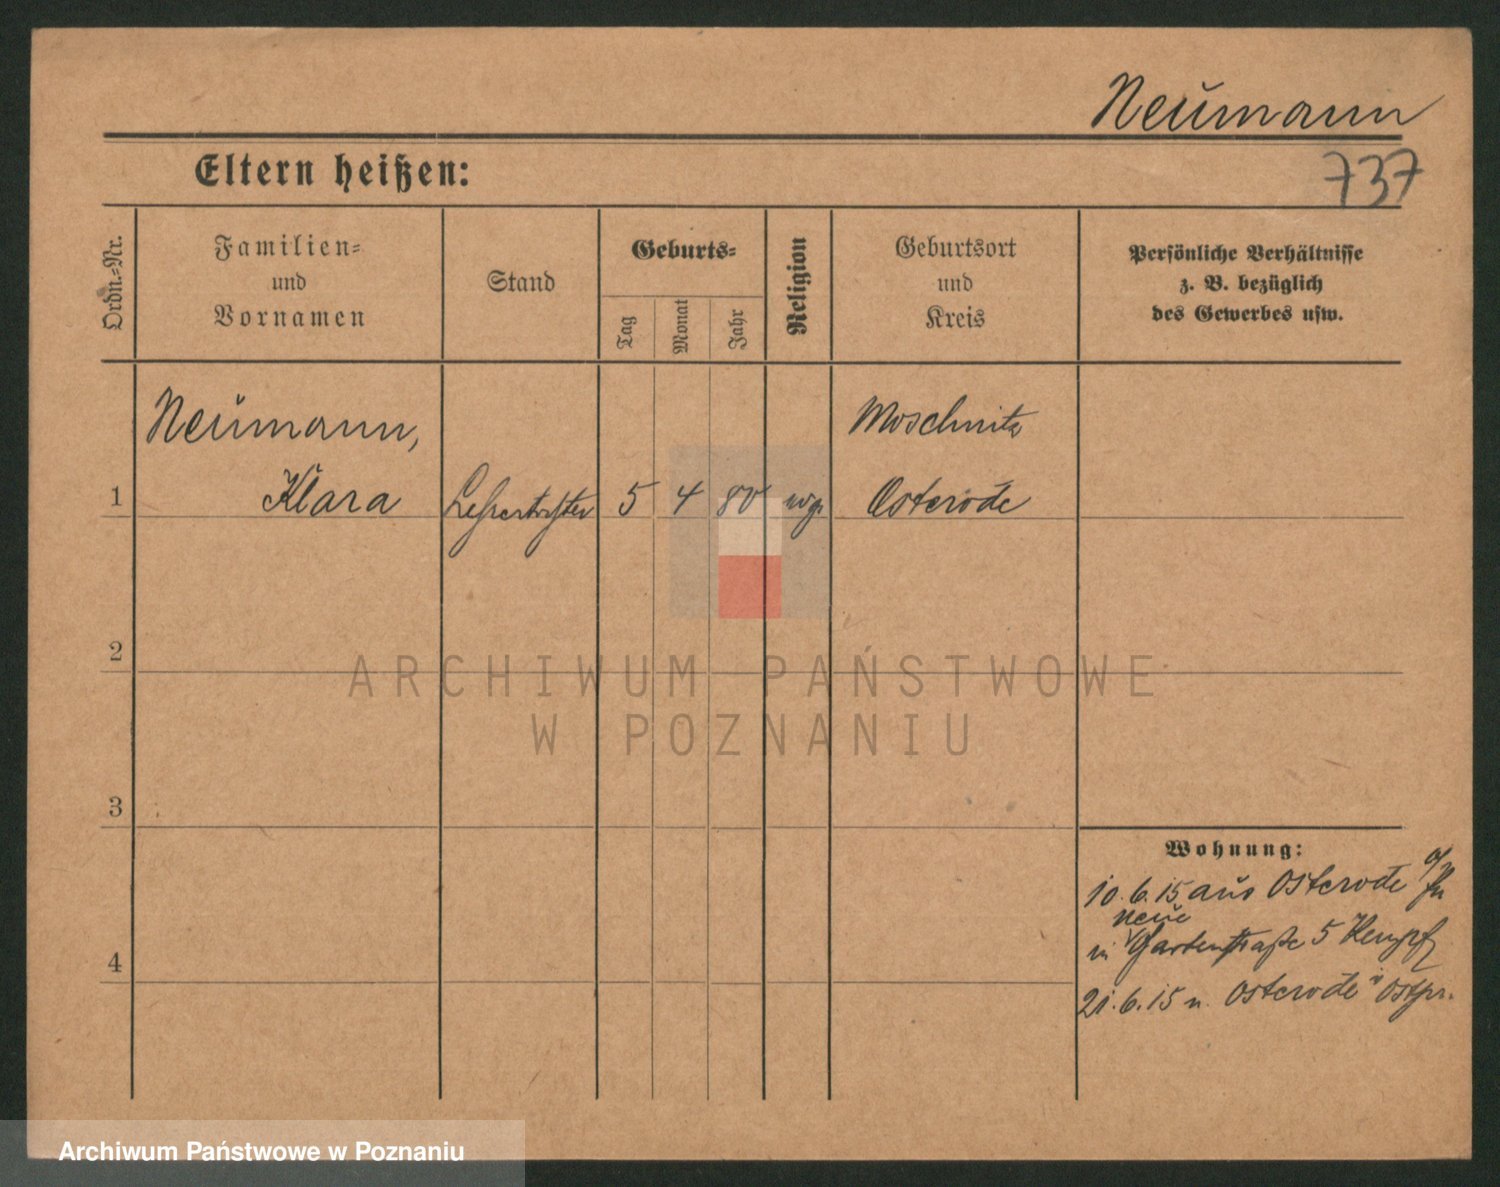 Neumann
737
Eltern heißen:
Ordn.=Nr.
Familien=
und
Vornamen
Stand
Geburts=
Tag
Monat
Jahr
Religion
Geburtsort
und
Kreis
Persönliche Verhältnisse
z. B. bezüglich
des Gewerbes usw.
Neumann, Moschnitz
1 Klara Lehrertochter 5 4 80 evgl Osterode
2
3
4
Wohnung:
10. 6. 15 aus Osterode
neue
in Gartenstraße 5
21. 6. 15 n. Osterode Ostpr.
ARCHIWUM PAŃSTWOWE
W POZNANIU
Archiwum Państwowe w Poznaniu